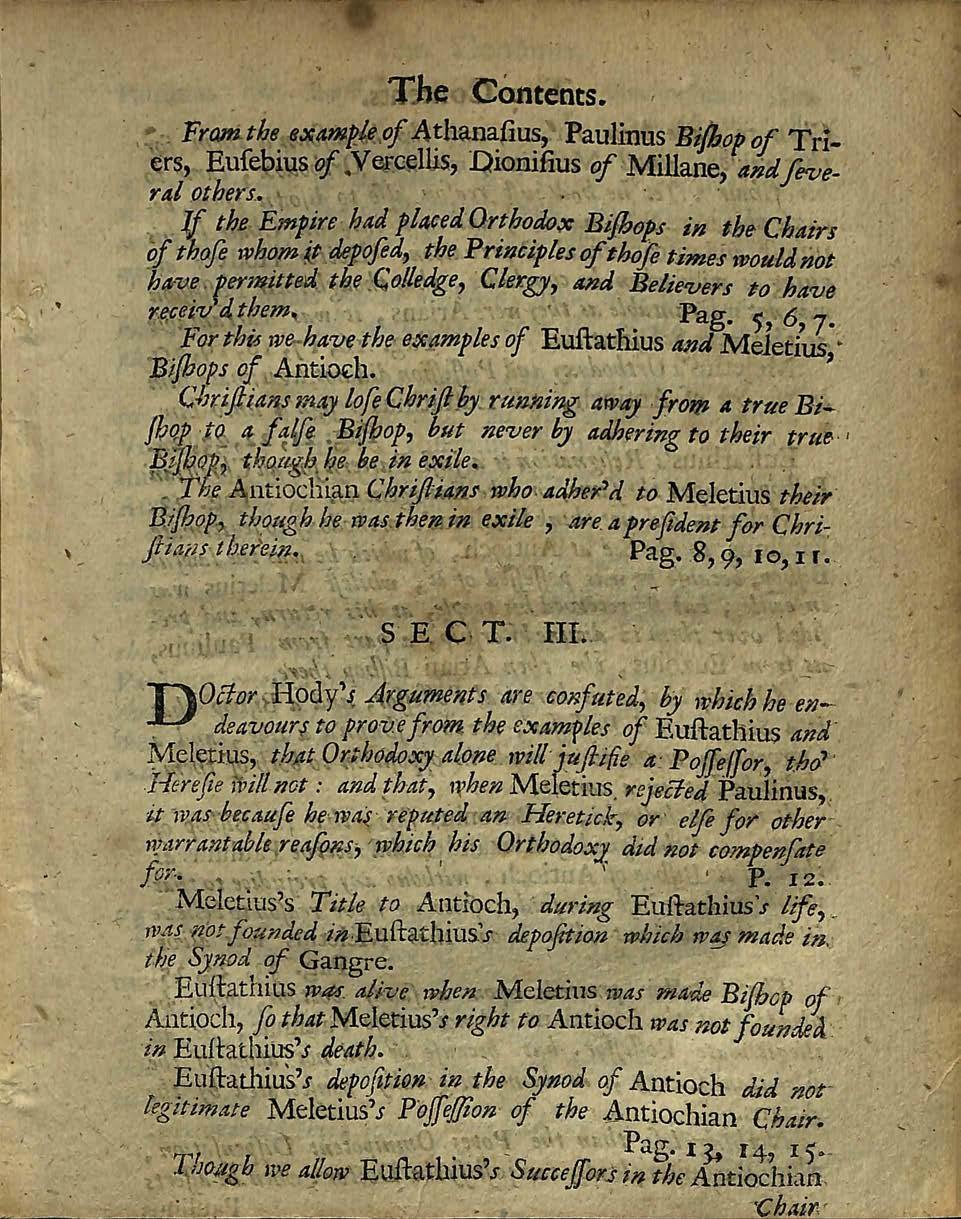 The Contents.
From the example of Athanaſius, Paulinus Biſhop of Tri-
ers, Euſebius of Vercellis, Dioniſius of Millane, and ſeve-
ral others.
If the Empire had placed Orthodox Biſhops in the Chairs
of thoſe whom it depoſed, the Principles of thoſe times would not
have permitted the Colledge, Clergy, and Believers to have
receiv'd them. Pag. 5, 6, 7.
For this we have the examples of Euſtathius and Meletius,
Biſhops of Antioch.
Chriſtians may loſe Chriſt by running away from a true Bi-
ſhop to a falſe Biſhop, but never by adhering to their true
Biſhop, though he be in exile.
The Antiochian Chriſtians who adher'd to Meletius their
Biſhop, though he was then in exile, are a preſident for Chri-
ſtians therein. Pag. 8, 9, 10, 11.
SECT. III.
DOctor Hody's Arguments are confuted, by which he en-
deavours to prove from the examples of Euſtathius and
Meletius, that Orthodoxy alone will juſtifie a Poſſeſſor, tho'
Hereſie will not: and that, when Meletius rejected Paulinus,
it was becauſe he was reputed an Heretick, or elſe for other
warrantable reaſons, which his Orthodoxy did not compenſate
for. P. 12.
Meletius's Title to Antioch, during Euſtathius's life,
was not founded in Euſtathius's depoſition which was made in
the Synod of Gangre.
Euſtathius was alive when Meletius was made Biſhop of
Antioch, ſo that Meletius's right to Antioch was not founded
in Euſtathius's death.
Euſtathius's depoſition in the Synod of Antioch did not
legitimate Meletius's Poſſeſſion of the Antiochian Chair.
Pag. 13, 14, 15.
Though we allow Euſtathius's Succeſſors in the Antiochian
Chair